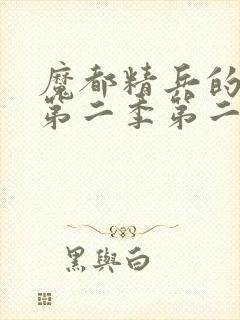 魔都精兵的
第二季第二
黑與白